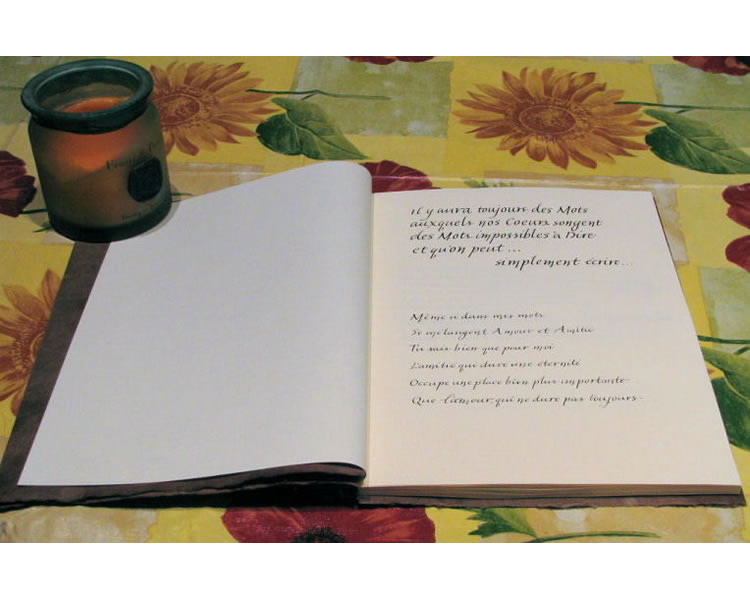 Il y aura toujours des Mots
auxquels nos Coeurs songent
des Mots impossibles à Dire
et qu'on peut ...
simplement écrire ...
Même si dans mes mots
Se mélangent Amour et Amitié
Tu sais bien que pour moi
L'amitié qui dure une éternité
Occupe une place bien plus importante
Que l'amour qui ne dure pas toujours